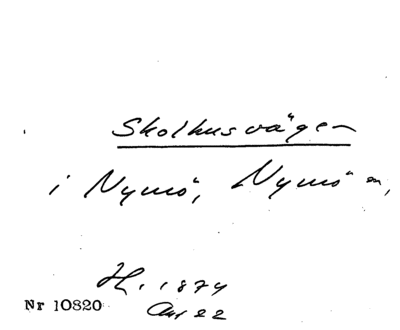 Skolhusvägen
i Nymö, Nymö sn,
H. 1874
Avt 22
Nr 10820